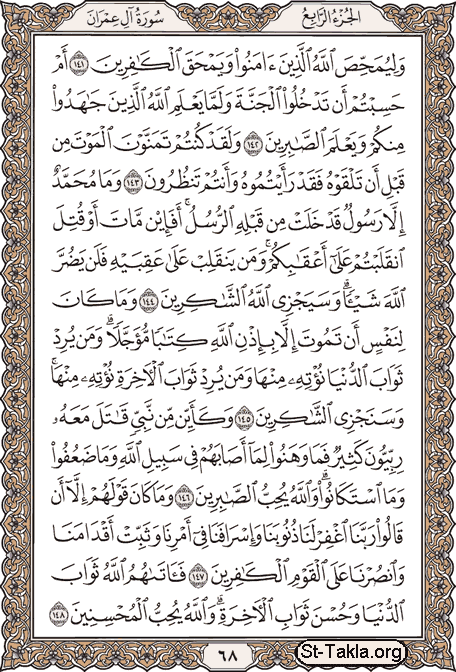 سُورَةُ آلِ عِمْرَانَ الجُزْءُ الرَّابِعُ
وَلِيُمَحِّصَ ٱللَّهُ ٱلَّذِينَ ءَامَنُوا۟ وَيَمْحَقَ ٱلْكَٰفِرِينَ ١٤١ أَمْ
حَسِبْتُمْ أَن تَدْخُلُوا۟ ٱلْجَنَّةَ وَلَمَّا يَعْلَمِ ٱللَّهُ ٱلَّذِينَ جَٰهَدُوا۟
مِنكُمْ وَيَعْلَمَ ٱلصَّٰبِرِينَ ١٤٢ وَلَقَدْ كُنتُمْ تَمَنَّوْنَ ٱلْمَوْتَ مِن
قَبْلِ أَن تَلْقَوْهُ فَقَدْ رَأَيْتُمُوهُ وَأَنتُمْ تَنظُرُونَ ١٤٣ وَمَا مُحَمَّدٌ
إِلَّا رَسُولٌ قَدْ خَلَتْ مِن قَبْلِهِ ٱلرُّسُلُ ۚ أَفَإِي۟ن مَّاتَ أَوْ قُتِلَ
ٱنقَلَبْتُمْ عَلَىٰٓ أَعْقَٰبِكُمْ ۚ وَمَن يَنقَلِبْ عَلَىٰ عَقِبَيْهِ فَلَن يَضُرَّ
ٱللَّهَ شَيْـًٔا ۗ وَسَيَجْزِى ٱللَّهُ ٱلشَّٰكِرِينَ ١٤٤ وَمَا كَانَ
لِنَفْسٍ أَن تَمُوتَ إِلَّا بِإِذْنِ ٱللَّهِ كِتَٰبًا مُّؤَجَّلًا ۗ وَمَن يُرِدْ
ثَوَابَ ٱلدُّنْيَا نُؤْتِهِۦ مِنْهَا وَمَن يُرِدْ ثَوَابَ ٱلْءَاخِرَةِ نُؤْتِهِۦ مِنْهَا ۚ
وَسَنَجْزِى ٱلشَّٰكِرِينَ ١٤٥ وَكَأَيِّن مِّن نَّبِىٍّ قَٰتَلَ مَعَهُۥ
رِبِّيُّونَ كَثِيرٌ فَمَا وَهَنُوا۟ لِمَآ أَصَابَهُمْ فِى سَبِيلِ ٱللَّهِ وَمَا ضَعُفُوا۟
وَمَا ٱسْتَكَانُوا۟ ۗ وَٱللَّهُ يُحِبُّ ٱلصَّٰبِرِينَ ١٤٦ وَمَا كَانَ قَوْلَهُمْ إِلَّآ أَن
قَالُوا۟ رَبَّنَا ٱغْفِرْ لَنَا ذُنُوبَنَا وَإِسْرَافَنَا فِىٓ أَمْرِنَا وَثَبِّتْ أَقْدَامَنَا
وَٱنصُرْنَا عَلَى ٱلْقَوْمِ ٱلْكَٰفِرِينَ ١٤٧ فَـَٔاتَىٰهُمُ ٱللَّهُ ثَوَابَ
ٱلدُّنْيَا وَحُسْنَ ثَوَابِ ٱلْءَاخِرَةِ ۗ وَٱللَّهُ يُحِبُّ ٱلْمُحْسِنِينَ ١٤٨
٦٨
St-Takla.org